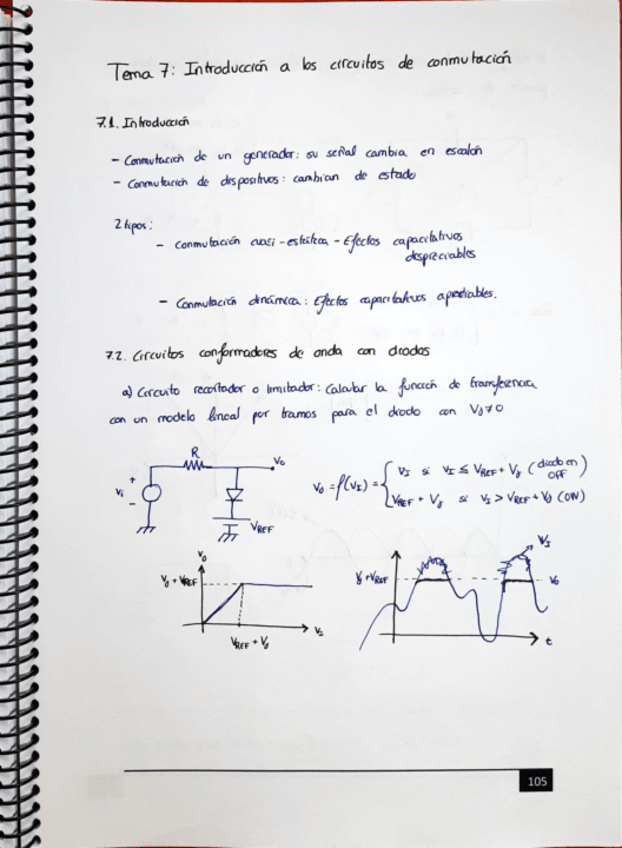 Tema 7: Introducción a los circuitos de conmutación
7.1. Introducción
- Conmutación de un generador: su señal cambia en escalón
- Conmutación de dispositivos: cambian de estado
2 tipos:
- Conmutación cuasi-estática - Efectos capacitativos
despreciables
- Conmutación dinámica: Efectos capacitativos apreciables.
7.2. Circuitos conformadores de onda con diodos
a) Circuito recortador o limitador: Calcular la función de transferencia
con un modelo lineal por tramos para el diodo con Vγ≠0
R
Vo
+
Vi
-
VREF
Vo = f(VI) = { VI si VI ≤ VREF + Vγ (diodo en OFF)
VREF + Vγ si VI > VREF + Vγ (ON)
Vo
Vγ + VREF
VREF + Vγ
VI
Vγ + VREF
VI
Vo
t
105